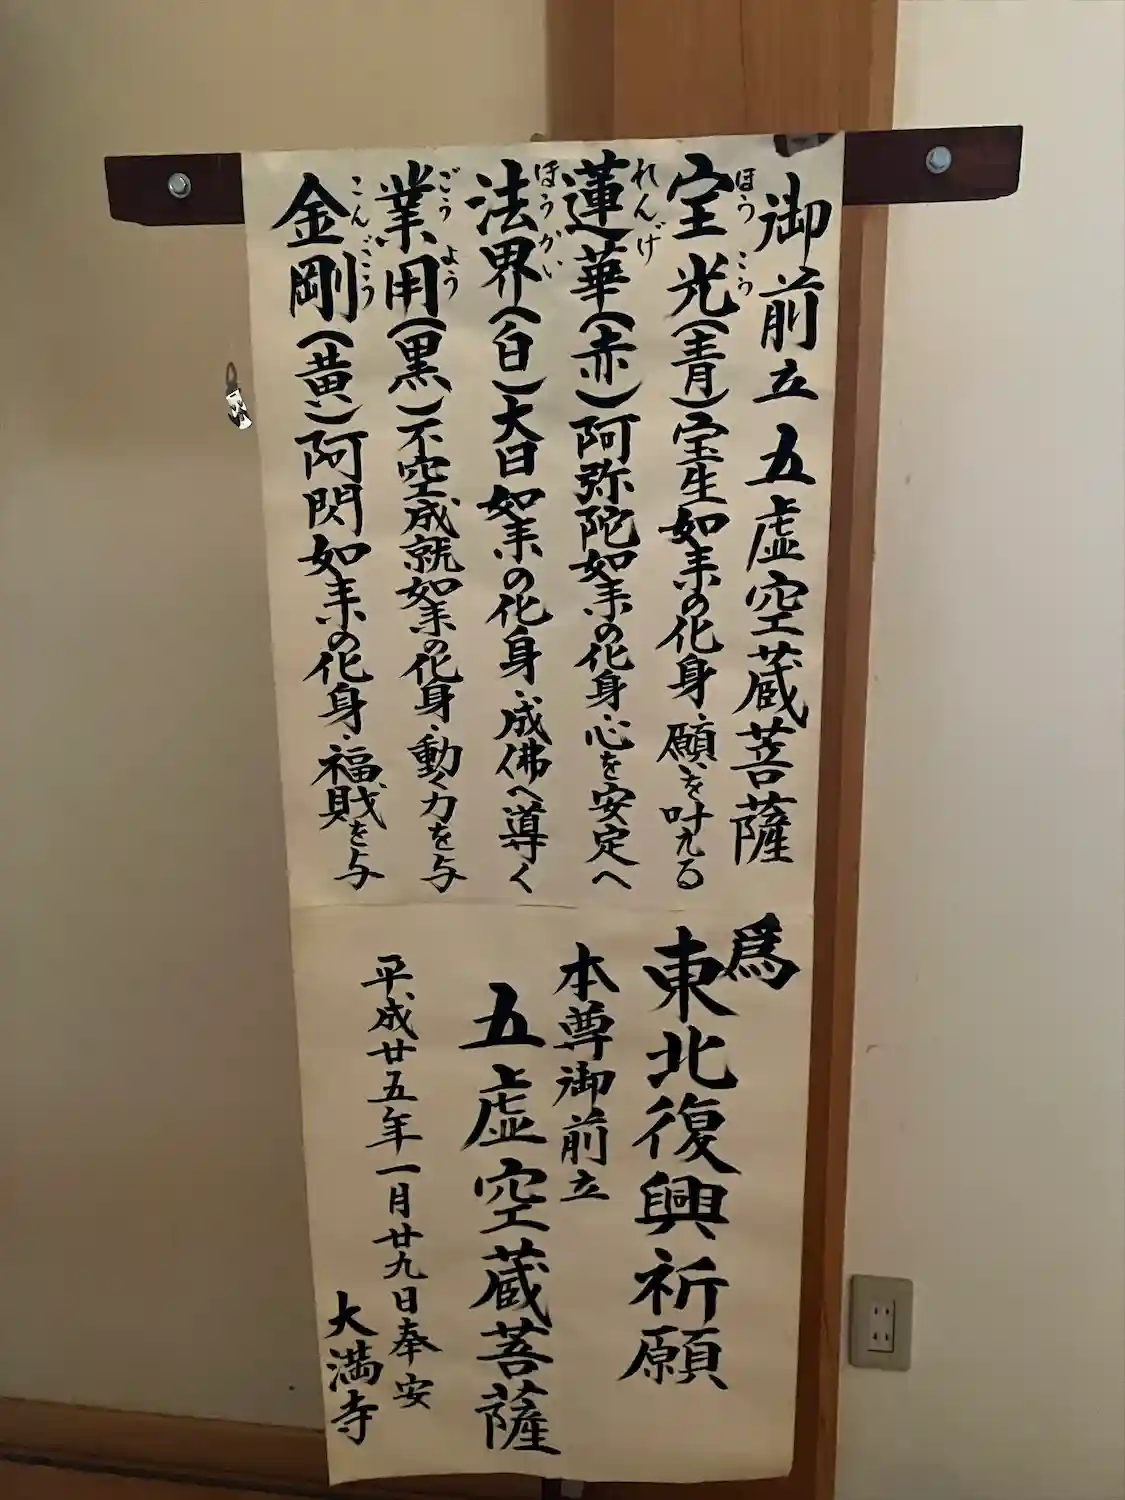 御前立 五虚空蔵菩薩
宝光(青)宝生如来の化身・願を叶える
ほう こう
蓮華(赤)阿弥陀如来の化身・心を安定へ
れんげ
法界(白)大日如来の化身・成佛へ導く
ほうかい
業用(黒)不空成就如来の化身・動く力を与
ごうよう
金剛(黄)阿閃如来の化身・福財を与
こんごう
為
東北復興祈願
本尊御前立
五虚空蔵菩薩
平成廿五年一月廿九日奉安
大満寺